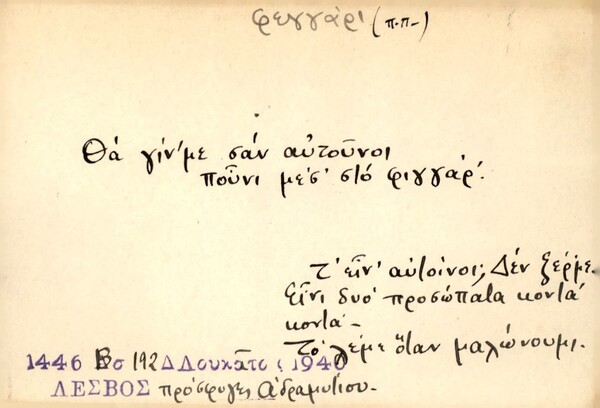 φεγγάρι (π.π-)
Θά γίν'με σάν αὐτοῦνοι
ποῦνι μέσ' στό φιγγάρ'.
Τ' εἶν' αὐτοῖνοι; Δέν ξέρμε.
Εἶνι δυό προσώπατα κοντά
κοντά -
Τό λέμε ὅταν μαλώνουμι.
1446 192 Δ Λουκᾶτος 1940
ΛΕΣΒΟΣ πρόσφυγες Ἀδραμυτίου.